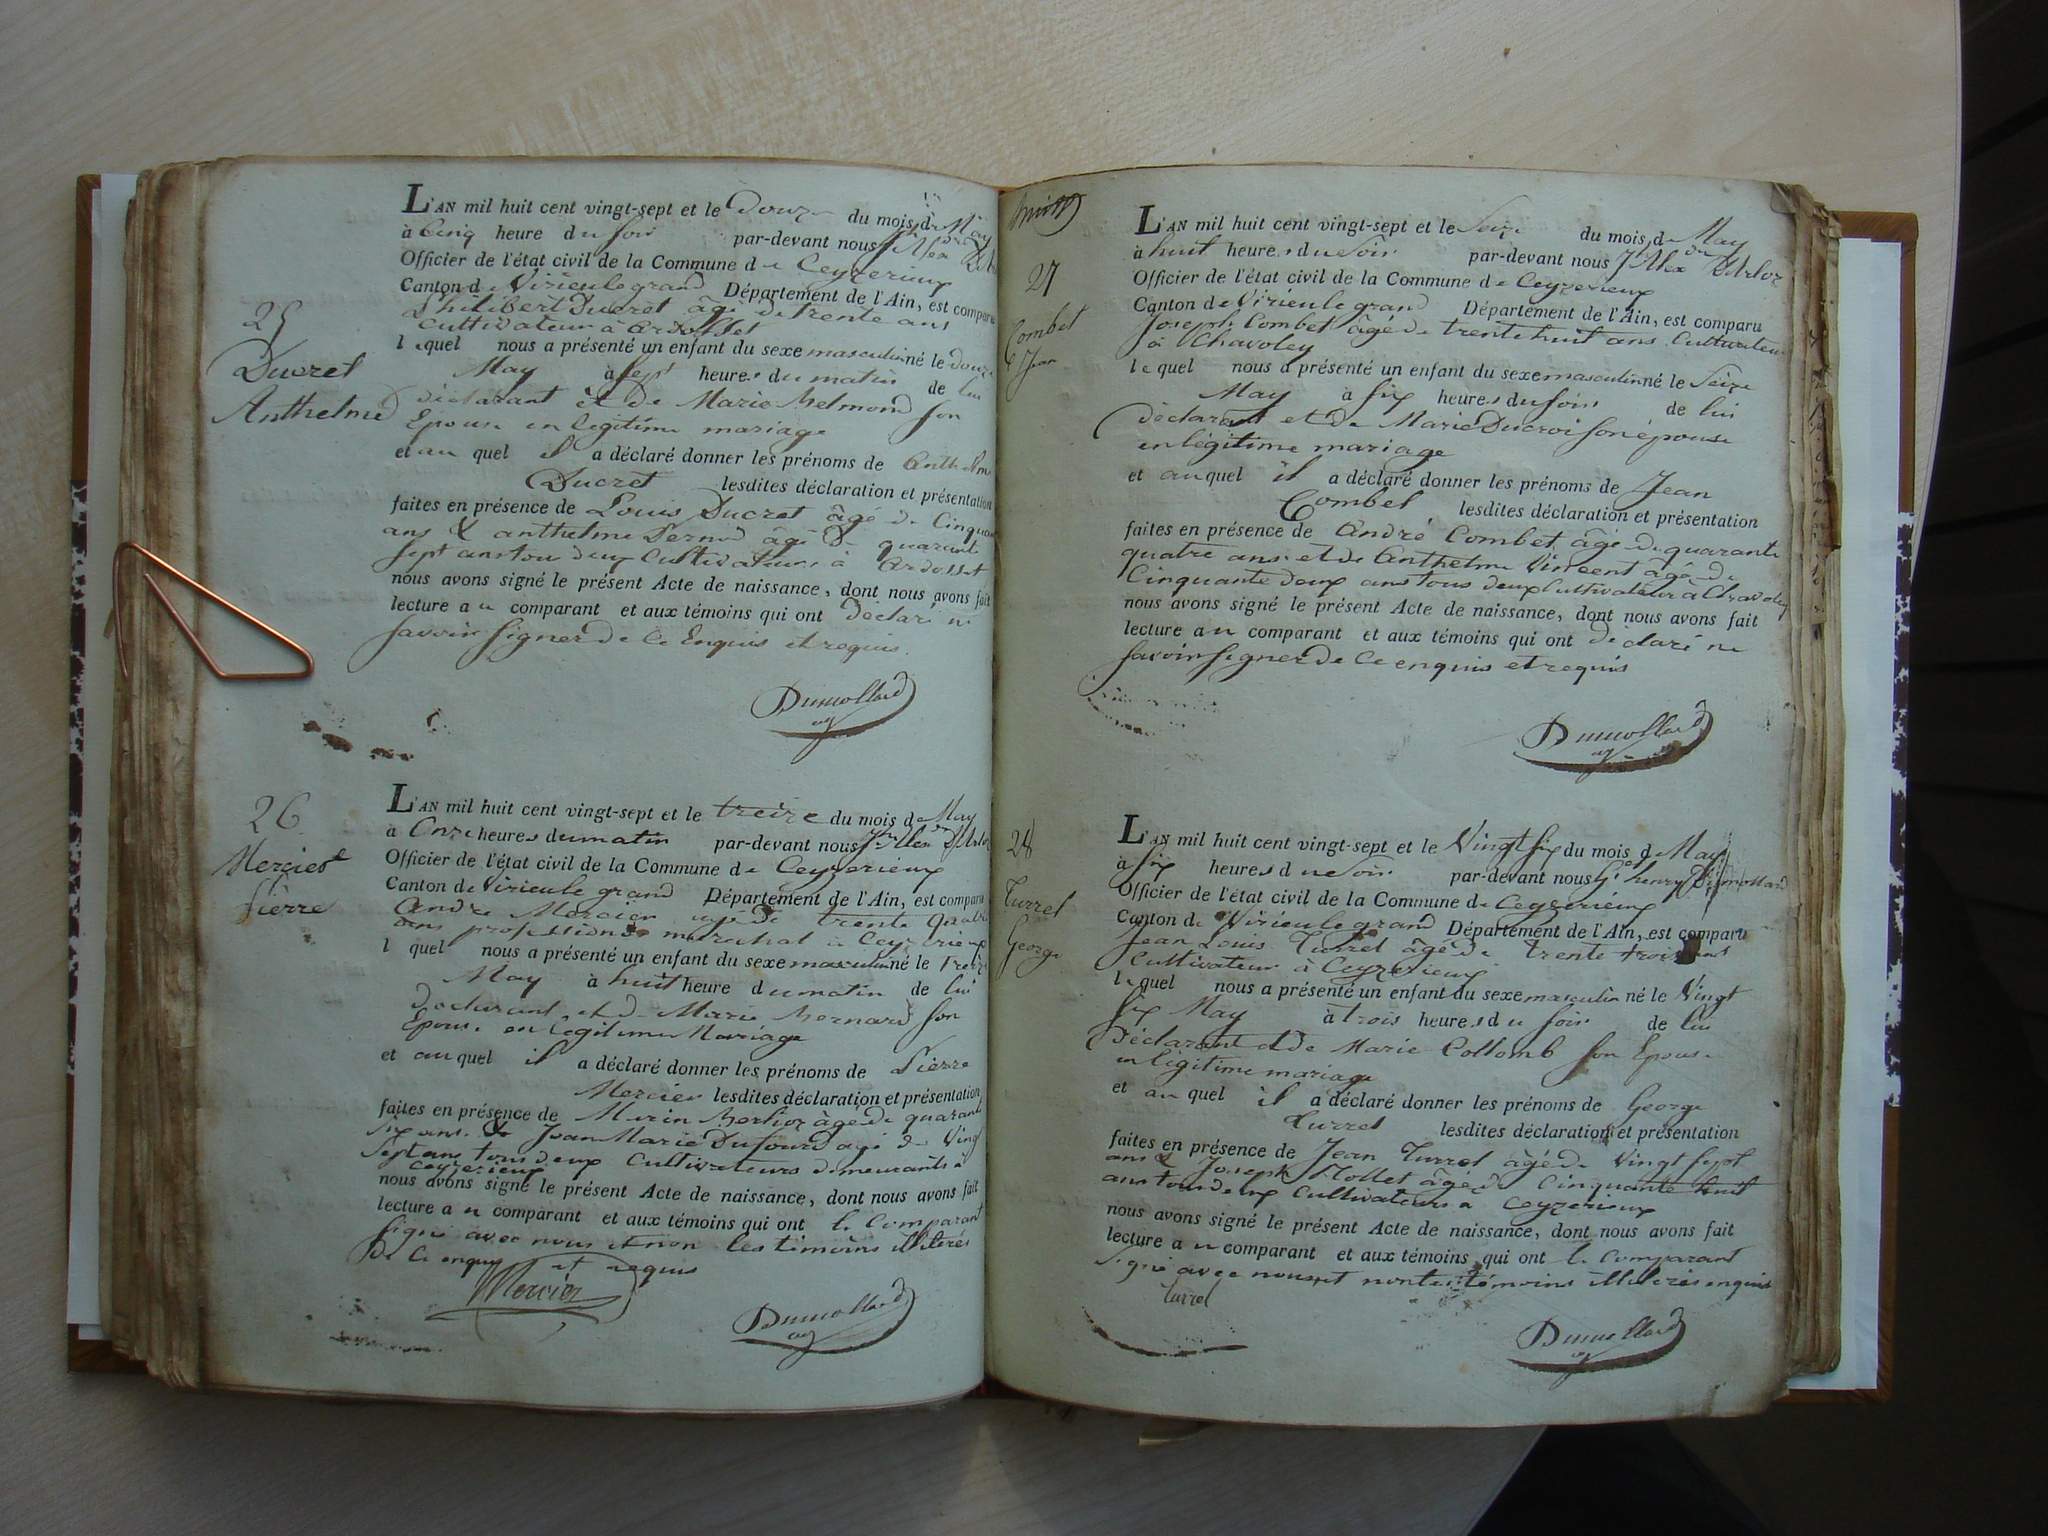 25
Ducret
Anthelme
L'AN mil huit cent vingt-sept et le Douze du mois de May
à Cinq heure du soir par-devant nous
Officier de l'état civil de la Commune de Ceyzerieux
Canton de Virieu le grand Département de l'Ain, est comparu
Philibert Ducret âgé de trente ans
Cultivateur à Ardosset
lequel nous a présenté un enfant du sexe masculin né le douze
May à sept heures du matin de lui
déclarant et de Marie son
Epouse en légitime mariage
et au quel il a déclaré donner les prénoms de Anthelme
Ducret lesdites déclaration et présentation
faites en présence de Louis Ducret âgé de Cinquante
ans & anthelme âgé de quarante
sept ans tou deux Cultivateurs à Ardosset
nous avons signé le présent Acte de naissance, dont nous avons fait
lecture au comparant et aux témoins qui ont Déclaré ne
savoir signer de Ce Enquis et requis.
Dumollard
26
Mercier
Pierre
L'AN mil huit cent vingt-sept et le treize du mois de May
à Onze heures du matin par-devant nous
Officier de l'état civil de la Commune de Ceyzerieux
Canton de Virieu le grand Département de l'Ain, est comparu
André Mercier agé de trente quatre
ans profession de marchal à Ceyzerieux
lequel nous a présenté un enfant du sexe masculin né le Treize
May à huit heure du matin de lui
declarant et de Marie Bernard son
Epouse en légitime Mariage
et au quel il a déclaré donner les prénoms de Pierre
Mercier lesdites déclaration et présentation
faites en présence de âgé de quarante
six ans & Jean Marie Dufour agé de Vingt
Sept ans tous deux Cultivateurs demeurants à
Ceyzerieux
nous avons signé le présent Acte de naissance, dont nous avons fait
lecture au comparant et aux témoins qui ont le Comparant
signé avec nous et non les témoins illiterés
de Ce enquis et requis
Mercier
Dumollard
27
Combet
Jean
L'AN mil huit cent vingt-sept et le Seize du mois de May
à huit heures du Soir par-devant nous
Officier de l'état civil de la Commune de Ceyzerieux
Canton de Virieu le grand Département de l'Ain, est comparu
Joseph Combet âgé de trente huit ans Cultivateur
à Chavoley
lequel nous a présenté un enfant du sexe masculin né le Seize
May à six heures du soir de lui
déclarant et de Marie Ducroi son épouse
en légitime mariage
et au quel il a déclaré donner les prénoms de Jean
Combet lesdites déclaration et présentation
faites en présence de André Combet âgé de quarante
quatre ans et de Anthelme Vincent âgé de
Cinquante deux ans tous deux Cultivateur a Chavoley
nous avons signé le présent Acte de naissance, dont nous avons fait
lecture au comparant et aux témoins qui ont déclaré ne
savoir signer de Ce enquis et requis
Dumollard
28
Turrel
George
L'AN mil huit cent vingt-sept et le Vingt six du mois de May
à six heures du Soir par-devant nous henry Dumollard
Officier de l'état civil de la Commune de Ceyzerieux
Canton de Virieu le grand Département de l'Ain, est comparu
Jean Louis Turrel âgé de trente trois ans
Cultivateur à Ceyzerieux
lequel nous a présenté un enfant du sexe masculin né le Vingt
six May à trois heures du soir de lui
Déclarant et de Marie Collomb son Epouse
en légitime mariage
et au quel il a déclaré donner les prénoms de George
Turrel lesdites déclaration et présentation
faites en présence de Jean Turrel âgé de Vingt sept
ans & Joseph Mollet âgé de Cinquante huit
ans tous deux Cultivateurs a Ceyzerieux
nous avons signé le présent Acte de naissance, dont nous avons fait
lecture au comparant et aux témoins qui ont le Comparant
signé avec nous et non les témoins illiterés enquis
turrel
Dumollard